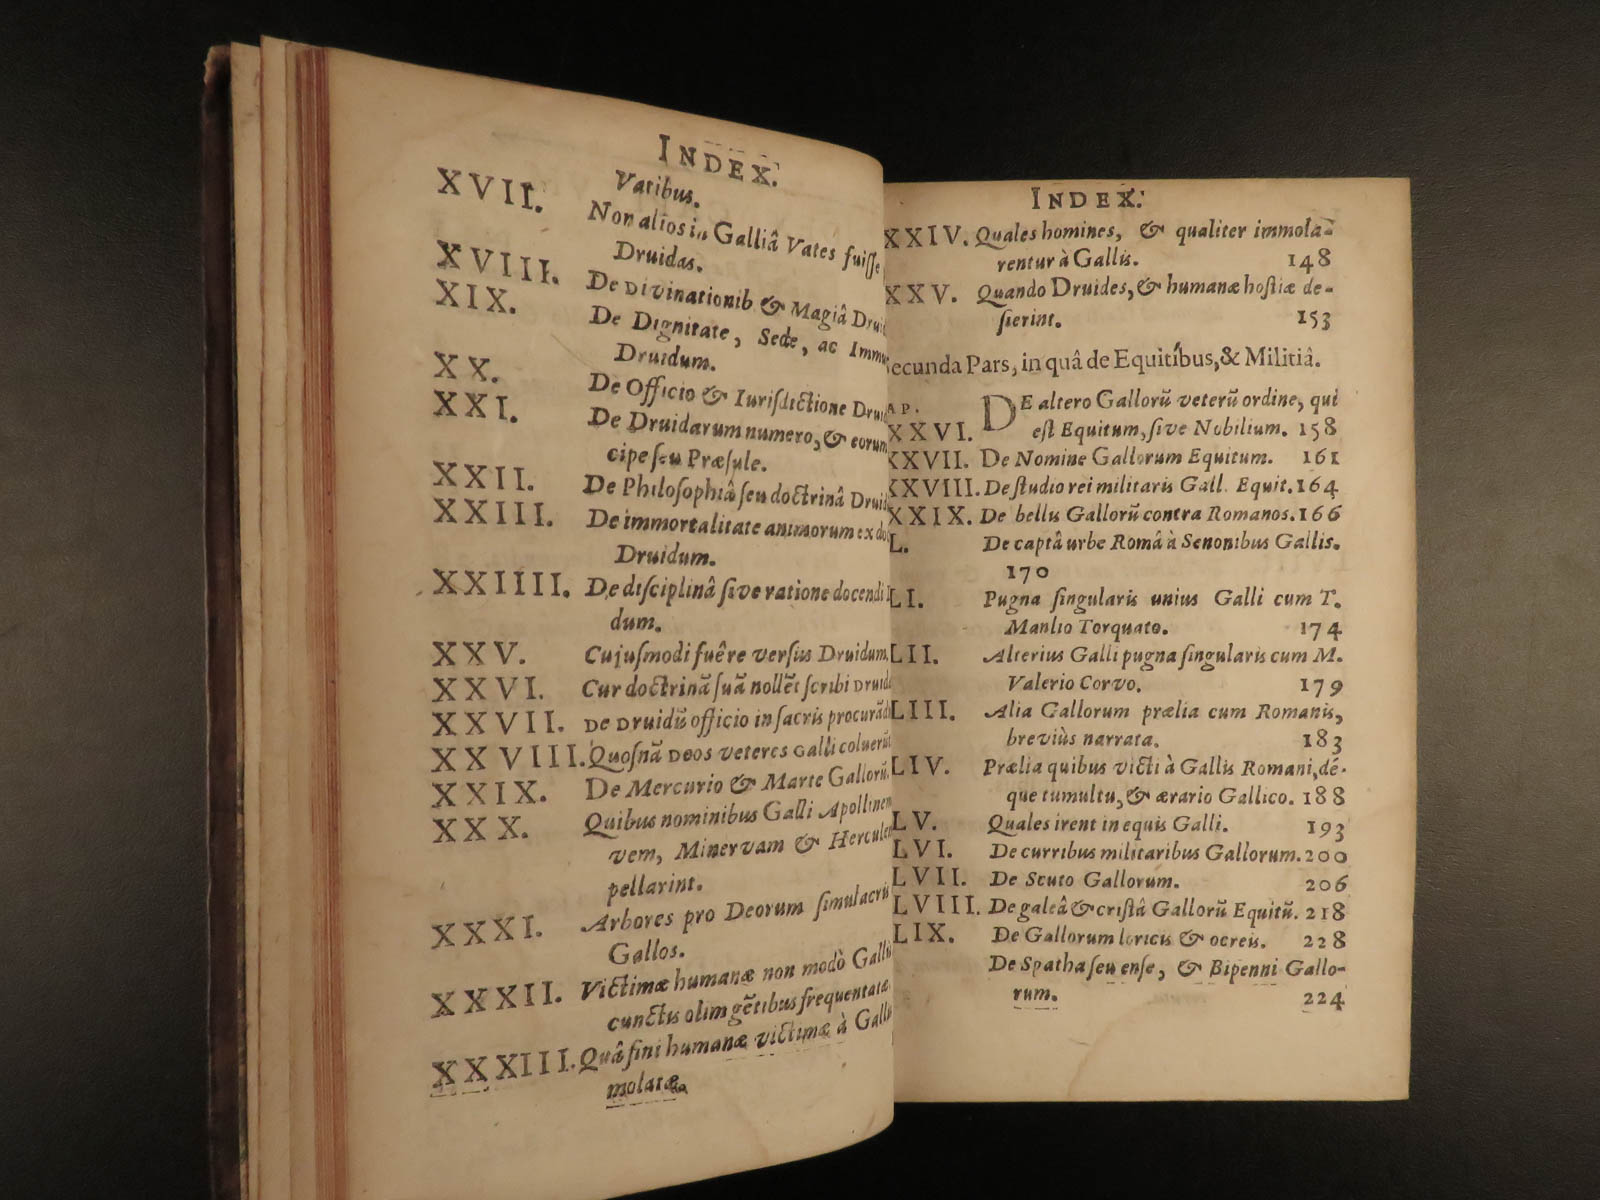 INDEX.
Vatibus.
XVII. Non alios in Galliâ Vates fuiſſe
Druidas.
XVIII. De Divinationib & Magiâ Druid
XIX. De Dignitate, Sede, ac Immu
Druidum.
XX. De Officio & Iuriſdictione Druid
XXI. De Druidarum numero, & eorum
cipe ſeu Præſule.
XXII. De Philoſophiâ ſeu doctrinâ Druid
XXIII. De immortalitate animorum ex do
Druidum.
XXIIII. De diſciplinâ ſive ratione docendi
dum.
XXV. Cujuſmodi fuêre verſus Druidum,
XXVI. Cur doctrinā ſuā nollēt ſcribi Druid
XXVII. De Druidū officio in ſacris procurād
XXVIII. Quoſnā Deos veteres Galli coluerūt
XXIX. De Mercurio & Marte Gallorū.
XXX. Quibus nominibus Galli Apollinem
vem, Minervam & Herculem
pellarint.
XXXI. Arbores pro Deorum ſimulacris
Gallos.
XXXII. Victimæ humanæ non modò Gallis
cunctis olim gētibus frequentatæ.
XXXIII. Quâ fini humanæ victimæ à Gallis
molatæ.
INDEX.
XXIV. Quales homines, & qualiter immola-
rentur à Gallis. 148
XXV. Quando Druides, & humanæ hoſtiæ de-
ſierint. 153
ecunda Pars, in quâ de Equitibus, & Militiâ.
AP.
XXVI. DE altero Gallorū veterū ordine, qui
eſt Equitum, ſive Nobilium. 158
XXVII. De Nomine Gallorum Equitum. 161
XXVIII. De ſtudio rei militaris Gall. Equit. 164
XXIX. De bellis Gallorū contra Romanos. 166
L. De captâ urbe Româ à Senonibus Gallis.
170
LI. Pugna ſingularis unius Galli cum T.
Manlio Torquato. 174
LII. Alterius Galli pugna ſingularis cum M.
Valerio Corvo. 179
LIII. Alia Gallorum prælia cum Romanis,
breviùs narrata. 183
LIV. Prælia quibus victi à Gallis Romani, dé-
que tumultu, & ærario Gallico. 188
LV. Quales irent in equis Galli. 193
LVI. De curribus militaribus Gallorum. 200
LVII. De Scuto Gallorum. 206
LVIII. De galeâ & criſtâ Gallorū Equitū. 218
LIX. De Gallorum loricis & ocreis. 228
De Spatha ſeu enſe, & Bipenni Gallo-
rum. 224